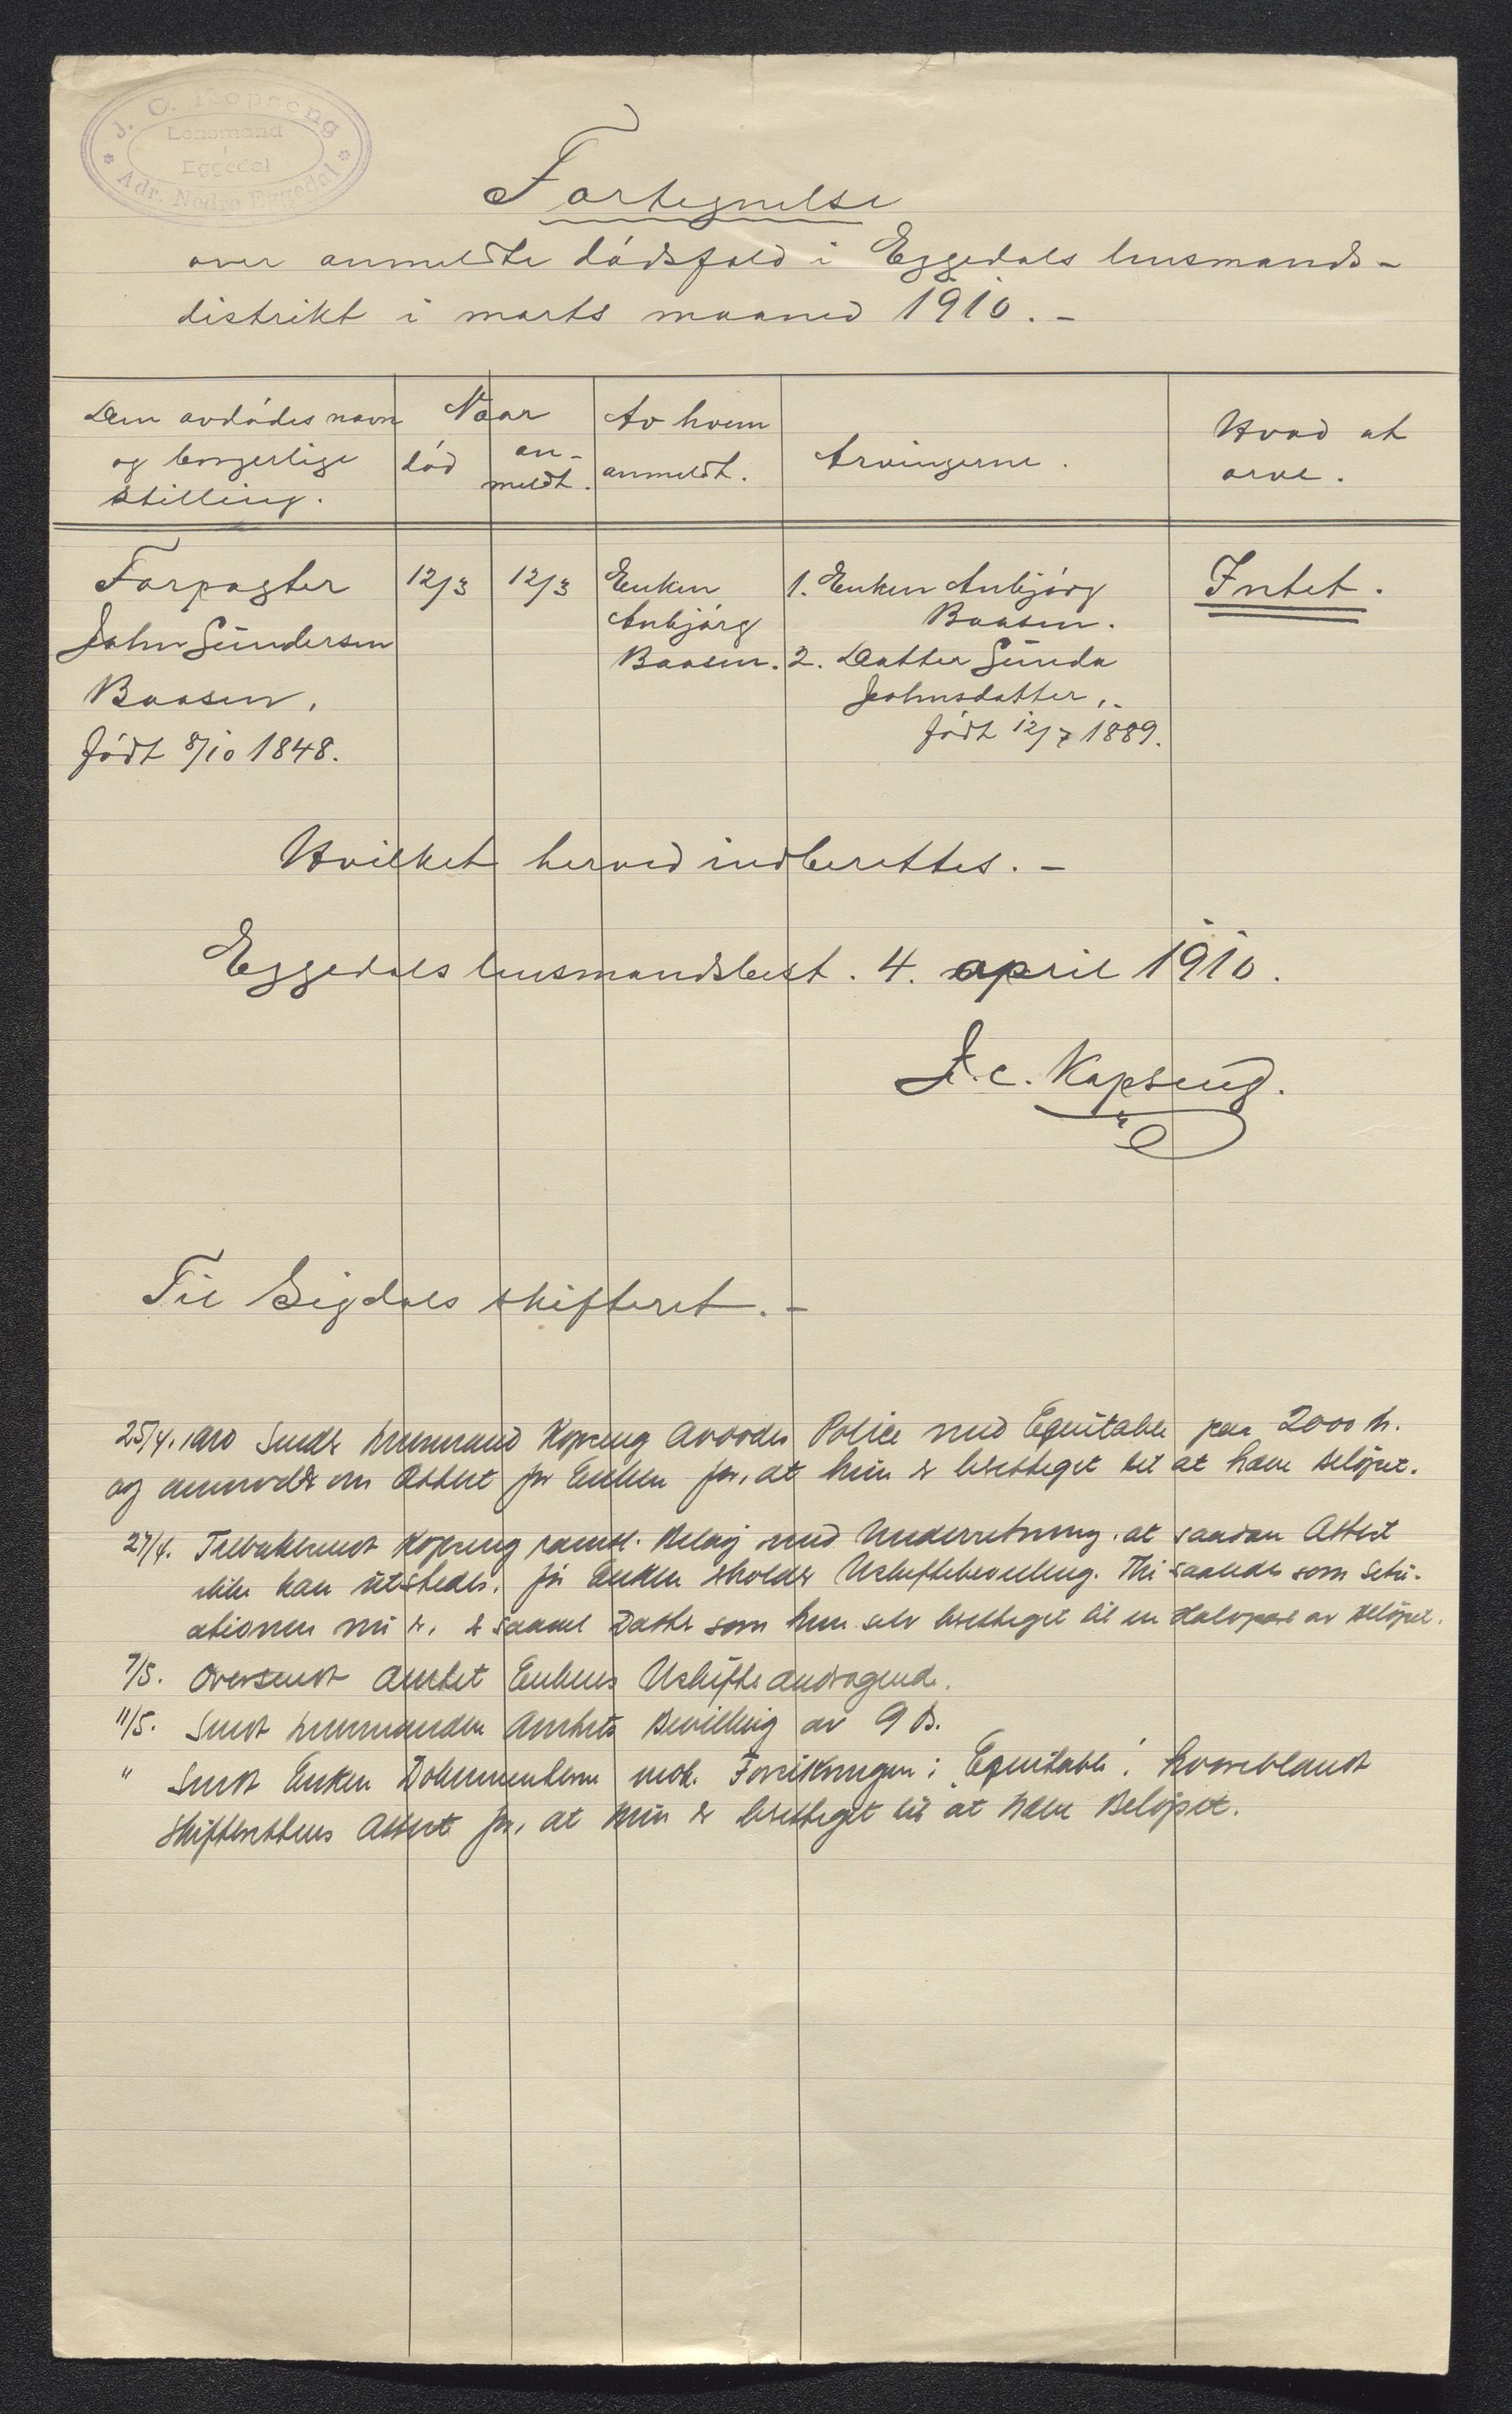 J. C. Kopseng
Lensmand
i
Eggedal
Adr. Nedre Eggedal
Fortegnelse
over anmeldte dödsfald i Eggedals lensmands-
distrikt i marts maaned 1910. -
Den avdödes navn
og borgerlige
stilling.
Naar
död
an-
meldt.
Av hvem
anmeldt.
Arvingerne.
Hvad at
arve.
Forpagter
John Gundersen
Baasen,
födt 8/10 1848.
12/3
12/3
Enken
Anbjörg
Baasen.
1. Enken Anbjörg
Baasen.
2. Datter Gunda
Johnsdatter,
födt 12/7 1889.
Intet.
Hvilket herved indberettes. -
Eggedals lensmandsbest. 4. april 1910.
J. C. Kopseng.
Til Sigdals skifteret. -
25/4. 1910 Sender Lensmand Kopseng Avdödes Police med Equitable paa 2000 Kr.
og anmoder om Attest for Enken for, at hun er berettiget til at hæve Belöpet.
27/4. Tilbakesendt Kopseng samtl. Bilag med Underretning at saadan Attest
ikke kan utstedes, för Enken erholder Uskiftebevilling. Thi saaledes som Situ-
ationen nu er, er saavel Datter som hun selv berettiget til en Halvpart av Belöpet.
7/5. Oversendt Amtet Enkens Uskifteandragende.
11/5. Sendt Lensmanden Amtets Bevilling av 9 ds.
" Sendt Enken Dokumenterne vedk. Forsikringen i "Equitable", hvoriblandt
Skifterettens Attest for, at hun er berettiget til at hæve Belöpet.